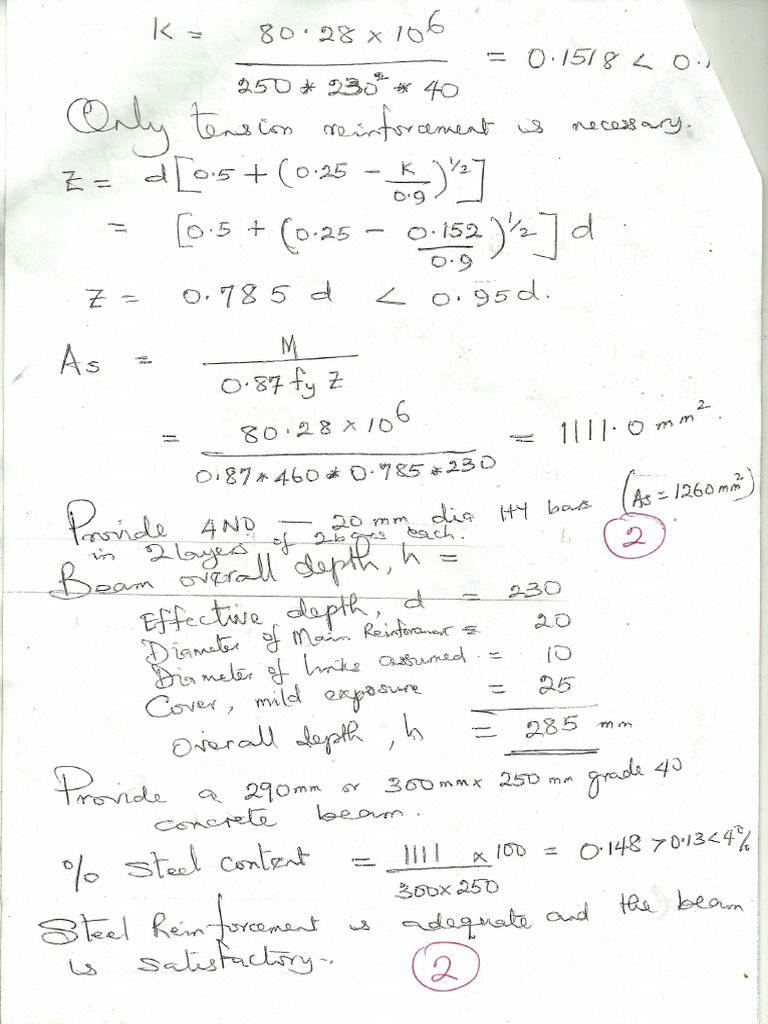 K = 80.28 x 10^6 / 250 * 230^2 * 40 = 0.1518 < 0.
Only tension reinforcement is necessary.
Z = d[0.5 + (0.25 - K/0.9)^1/2]
= [0.5 + (0.25 - 0.152/0.9)^1/2] d
Z = 0.785 d < 0.95d.
As = M / 0.87 fy Z
= 80.28 x 10^6 / 0.87 * 460 * 0.785 * 230 = 1111.0 mm^2.
Provide 4NO — 20 mm dia HY bars (As = 1260 mm^2)
in 2 layers of 2 bars each. 2
Beam overall depth, h =
Effective depth, d = 230
Diameter of Main Reinforcement = 20
Diameter of links assumed = 10
Cover, mild exposure = 25
Overall depth, h = 285 mm
Provide a 290mm or 300mm x 250 mm grade 40
concrete beam.
% Steel content = 1111 x 100 / 300 x 250 = 0.148 > 0.13 < 4%
Steel Reinforcement is adequate and the beam
is satisfactory. 2